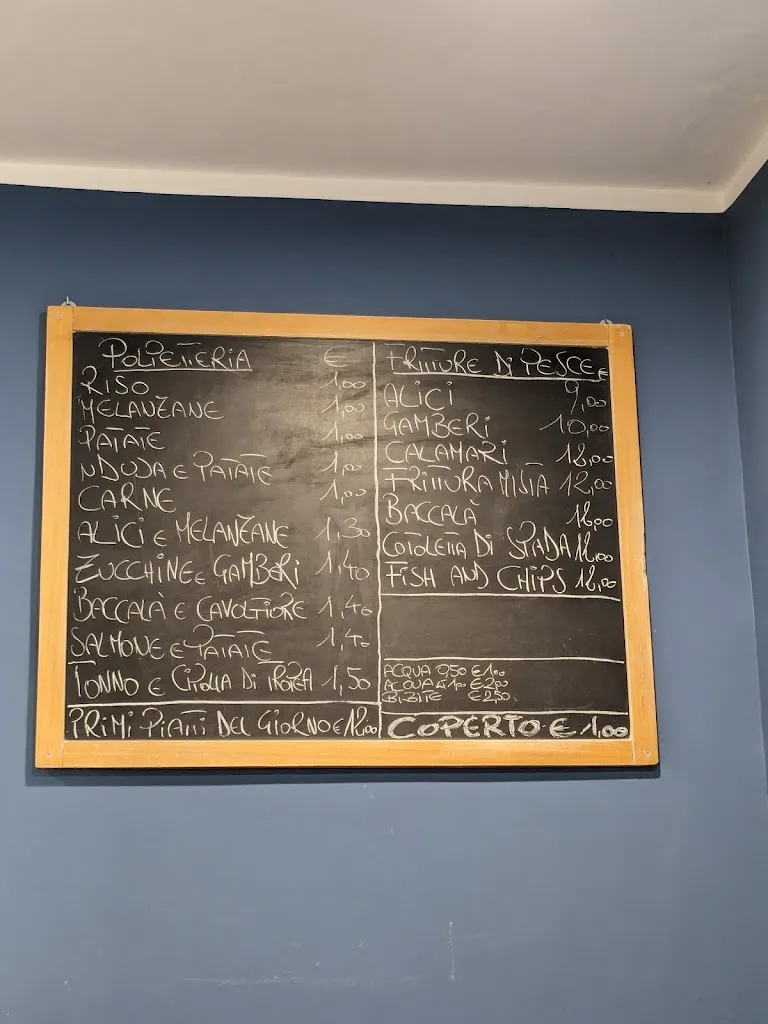 POLPETTERIA €
RISO 1,00
MELANZANE 1,00
PATATE 1,00
NDUJA E PATATE 1,00
CARNE 1,00
ALICI E MELANZANE 1,30
ZUCCHINE E GAMBERI 1,40
BACCALÀ E CAVOLFIORE 1,40
SALMONE E PATATE 1,40
TONNO E CIPOLLA DI TROPEA 1,50
PRIMI PIATTI DEL GIORNO € 12,00
FRITTURE DI PESCE €
ALICI 9,00
GAMBERI 10,00
CALAMARI 12,00
FRITTURA MISTA 12,00
BACCALÀ 12,00
COTOLETTA DI SPADA 12,00
FISH AND CHIPS 12,00
ACQUA 0,50 € 1,00
ACQUA LT 1,00 € 2,00
BIBITE € 2,50
COPERTO € 1,00